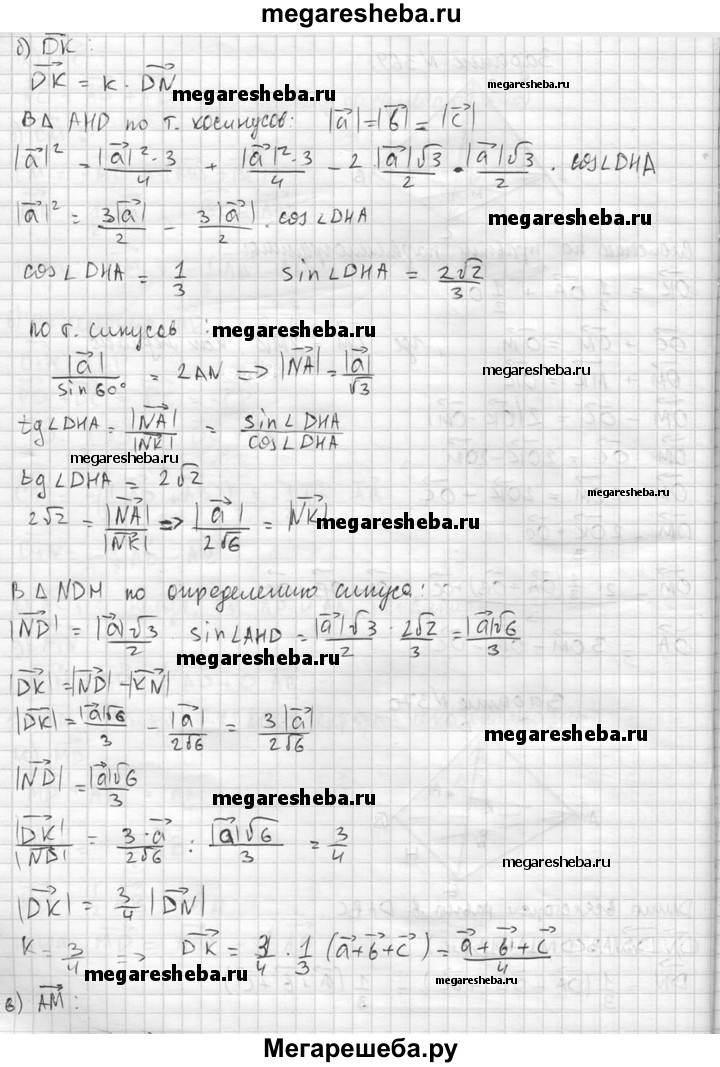 megaresheba.ru
б) DK⃗ :
DK⃗ = k · DN⃗
megaresheba.ru
megaresheba.ru
В Δ AHD по т. косинусов: |a⃗| = |b⃗| = |c⃗|
|a⃗|² = |a⃗|²·3/4 + |a⃗|²·3/4 − 2 · |a⃗|√3/2 · |a⃗|√3/2 · cos∠DHA
|a⃗|² = 3|a⃗|/2 − 3|a⃗|/2 · cos∠DHA
megaresheba.ru
cos∠DHA = 1/3 sin∠DHA = 2√2/3
по т. синусов :
megaresheba.ru
|a⃗|/sin60° = 2AN => |NA⃗| = |a⃗|/√3
megaresheba.ru
tg∠DHA = |NA⃗|/|NK⃗| = sin∠DHA/cos∠DHA
megaresheba.ru
tg∠DHA = 2√2
megaresheba.ru
2√2 = |NA⃗|/|NK⃗| => |a⃗|/2√6 = |NK⃗|
megaresheba.ru
В Δ NDH по определению синуса:
|ND⃗| = |a⃗|√3/2 · sin∠AHD = |a⃗|√3/2 · 2√2/3 = |a⃗|√6/3
megaresheba.ru
|DK⃗| = |ND⃗| − |KN⃗|
|DK⃗| = |a⃗|√6/3 − |a⃗|/2√6 = 3|a⃗|/2√6
megaresheba.ru
|ND⃗| = |a⃗|√6/3
megaresheba.ru
|DK⃗|/|ND⃗| = 3·a⃗/2√6 : |a⃗|√6/3 = 3/4
megaresheba.ru
|DK⃗| = 3/4 |DN⃗|
k = 3/4 => DK⃗ = 3/4 · 1/3 (a⃗+b⃗+c⃗) = a⃗+b⃗+c⃗/4
megaresheba.ru
megaresheba.ru
в) AM⃗ :
Мегарешеба.ру